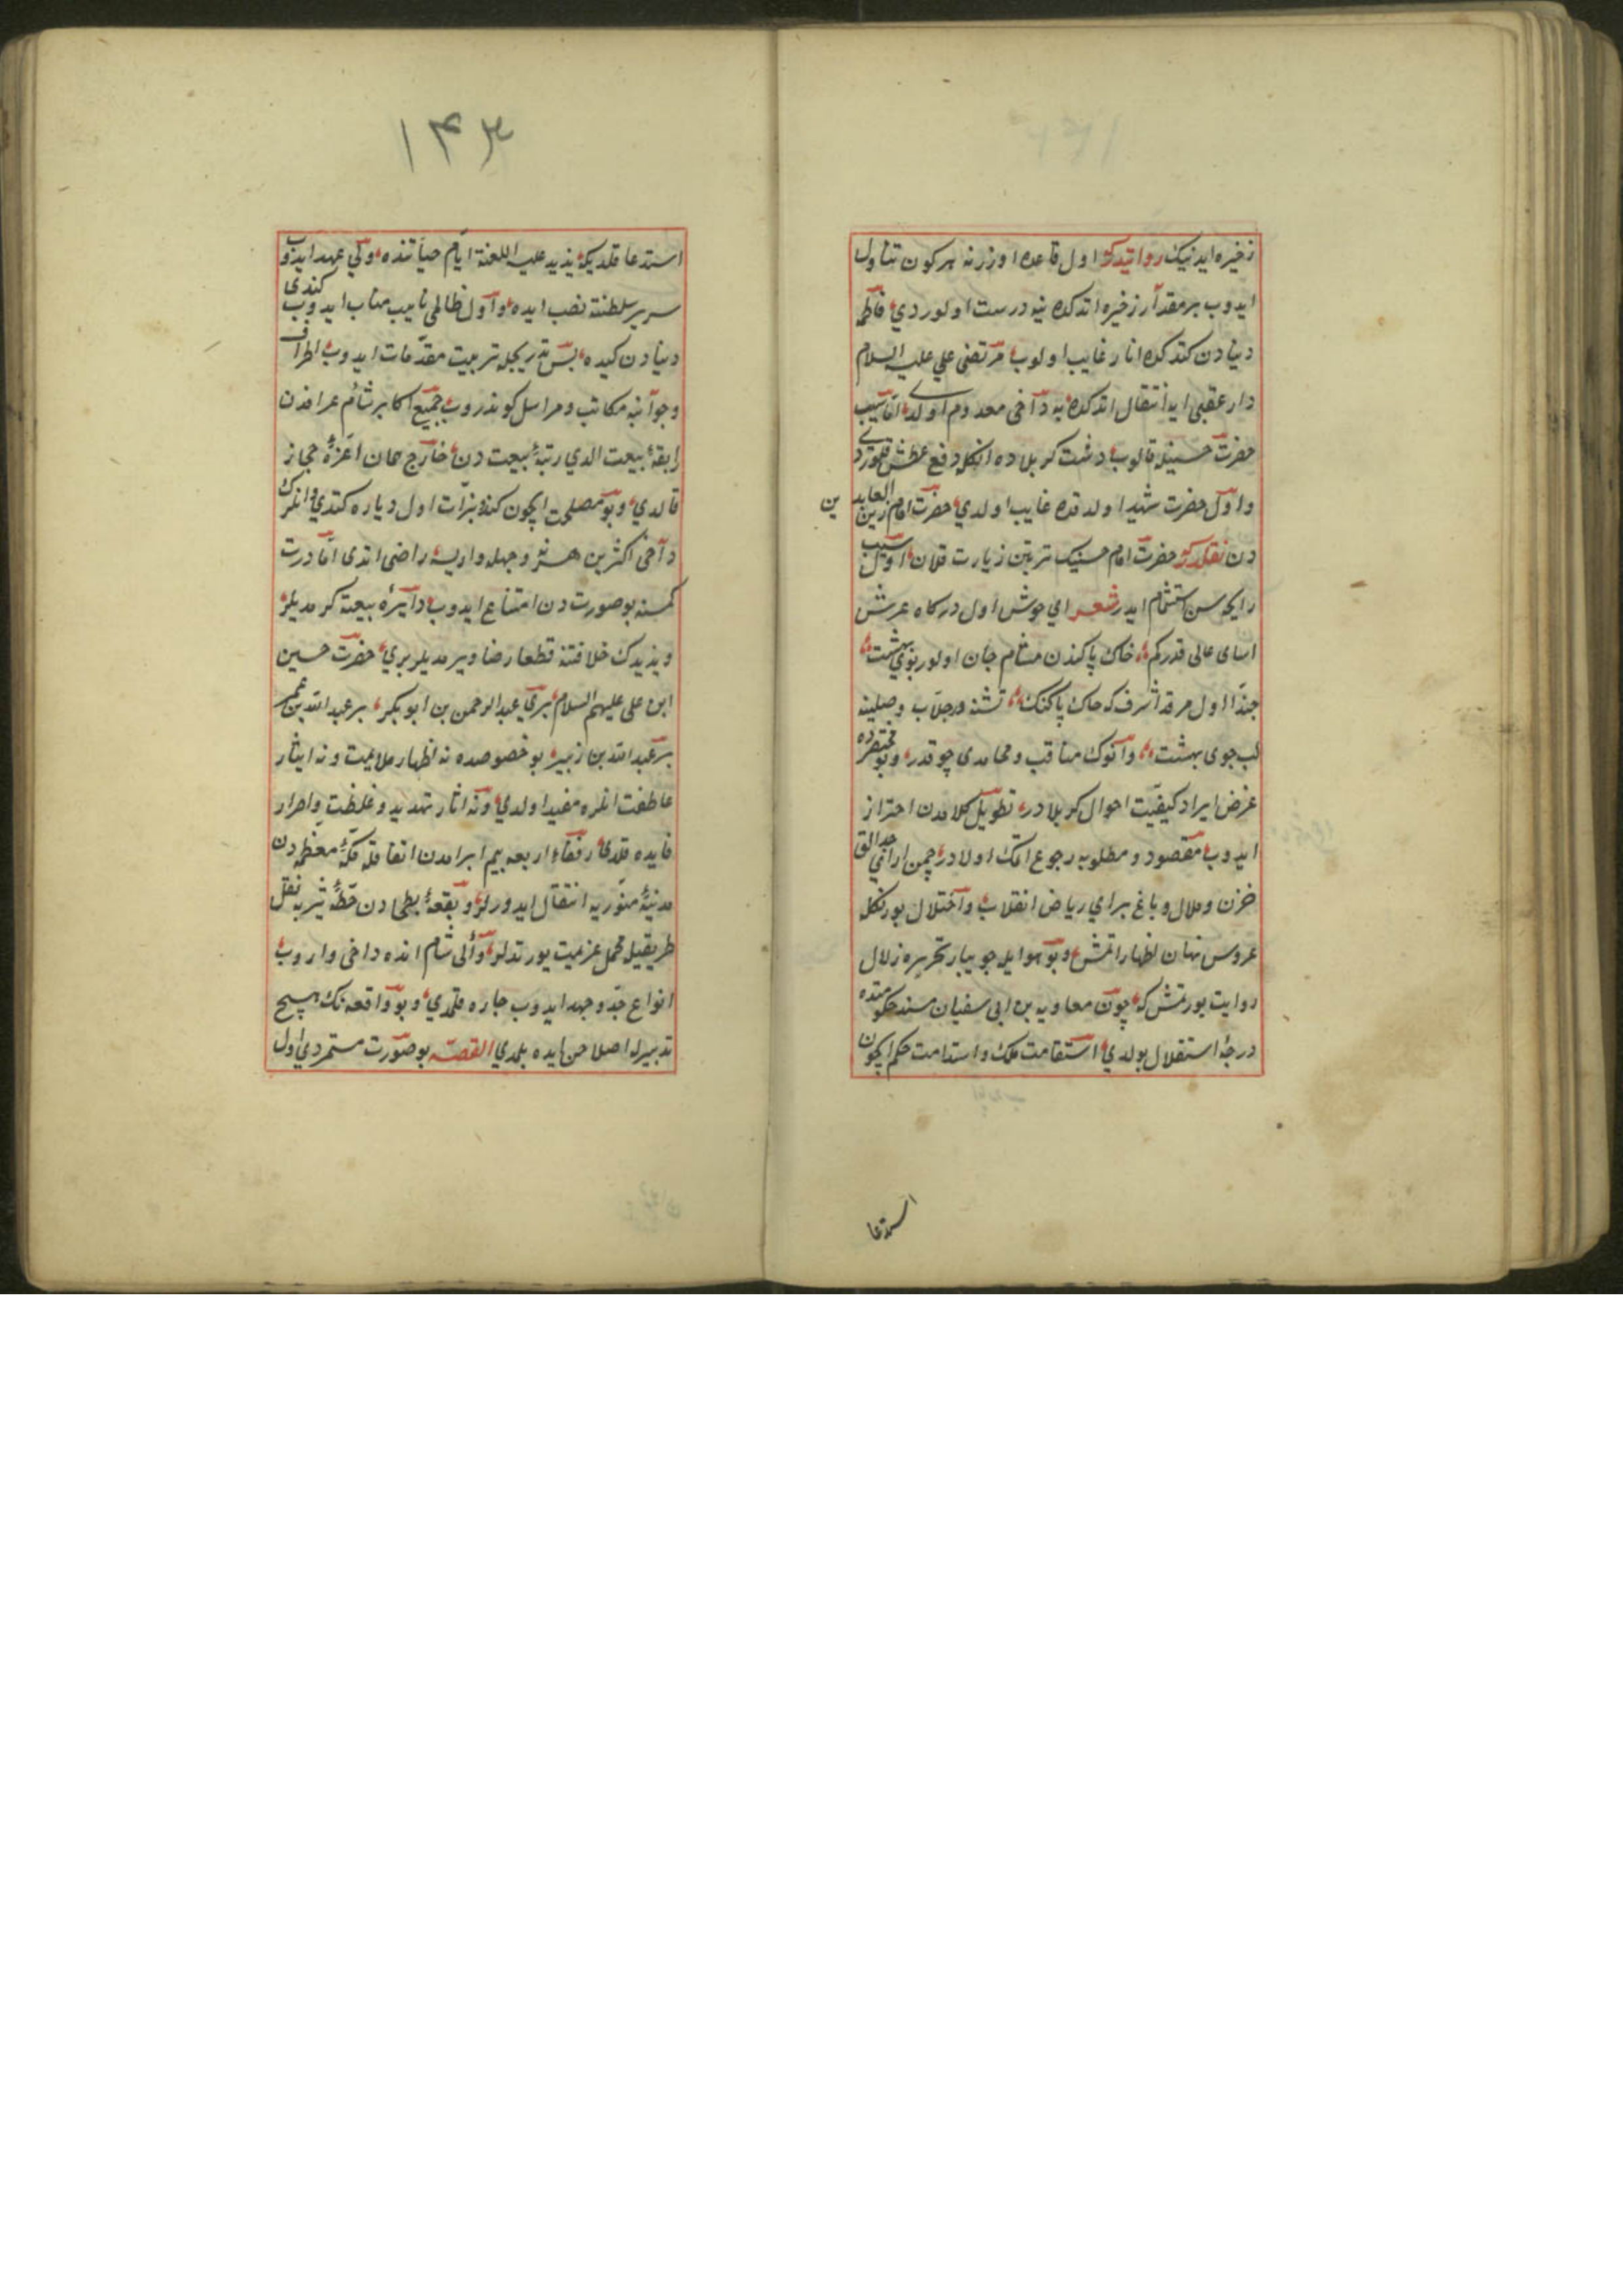 ذخیره ایدنیک روایتدر که اول قاعده اوزرنه هر کون تناول
ایدوب بر مقدار ذخیره اتدکده ینه درست اولوردی فاطمه
دنیادن کتدکده انار غایب اولوب مرتضی علی علیه السلام
دار عقبی ایه انتقال اتدکده به داخی معدوم اولدی اما سیب
حضرت حسینله قالوب دشت کربلاده انکله دفع عطش قلوردی
و اول حضرت شهید اولدقده غایب اولدی حضرت امام زین العابدین
دن نقلدر که حضرت امام حسینک تربتن زیارت قلان اول سیب
رایحه سن استشمام ایدر شعر ای خوش اول درکاه عرش
اسای عالی قدرکم خاک پاکندن مشام جان اولور بوی بهشت
حبذا اول مرقد اشرف که خاک پاکنک تشنه در جلاب وصلینه
لب جوی بهشت و انوک مناقب و محامدی چوقدر و بو مختصرده
غرض ایراد کیفیت احوال کربلادر تطویل کلامدن احتراز
ایدوب مقصود و مطلوبه رجوع اتمک اولادر چمن ارای حدایق
حزن و ملال و باغ برای ریاض انقلاب و اختلال بو رنکله
عروس نهان اظهار اتمش و بو هوا ایله جویبار تحریره زلال
روایت یورتمش که چون معاویه بن ابی سفیان مسند حکومتده
درجهٔ استقلال بولدی استقامت ملک و استدامت حکم ایچون
استدعا
۱۴۳
استدعا قلدیکه یزید علیه اللعنة ایام حیاتنده ولی عهد ایدوب
سریر سلطنته نصب ایده و اول ظالمی نایب مناب ایدوب کندی
دنیادن کیده پس تدریجله تربیت مقدمات ایدوب اطراف
و جوانبه مکاتب و مراسل کوندروب جمیع اکابر شام عراقدن
رابقهٔ بیعت الدی رتبهٔ بیعت دن خارج همان اعزهٔ حجاز
قالدی و بو مصلحت ایچون کندو بذات اول دیاره کتدی و انلرک
داخی اکثرین هر نه وجهله وار ایسه راضی اتدی اما درت
کمسنه بو صورت دن امتناع ایدوب دایرهٔ بیعته کرمدیلر
و یزیدک خلافتنه قطعا رضا ویرمدیلر بری حضرت حسین
ابن علی علیهم السلام بری عبد الرحمن بن ابو بکر بر عبد الله بن عمر
بر عبد الله بن زبیر بو خصوصده نه اظهار ملاعبت و نه ایثار
عاطفت انلره مفید اولدی و نه اثار تهدید و غلظت و اصرار
فایده قلدی رفقاء اربعه بیم ابرامدن اتفاقله مکهٔ معظمه دن
مدینهٔ منوریه انتقال ایدورلر و بقعهٔ بطحادن خطهٔ یثربه نقل
طریقیله محمل عزیمت یورتدلر والی شام انده داخی واروب
انواع جد و جهد ایدوب چاره قلمدی و بو واقعه نک هیچ
تدبیرله اصلاحن ایده بلمدی القصه بو صورت مستمر دی اول